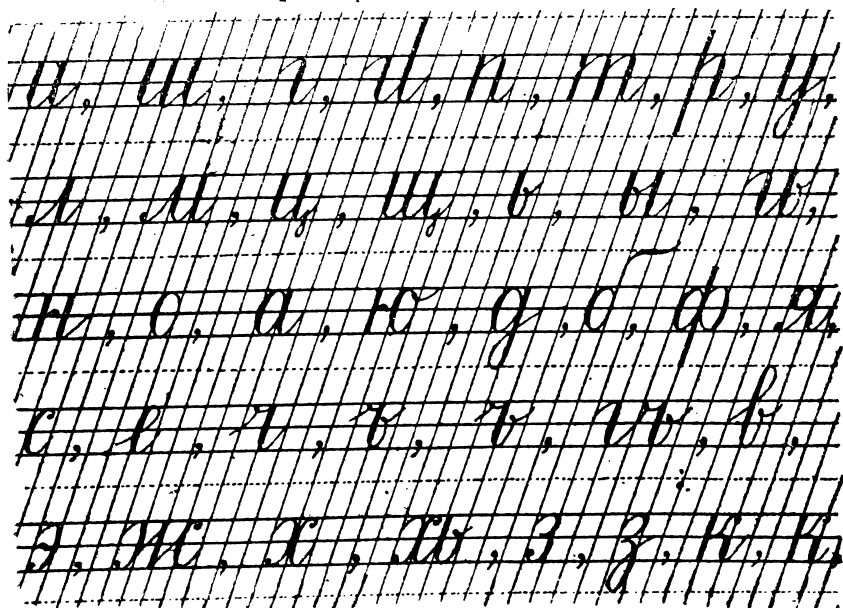 и, ш, г, п, т, р, у,
л, м, ц, щ, ь, ы,
н, о, а, ю, д, б, ф, я,
с, е, ч, ъ, в,
э, ж, х, з, з, к, к,